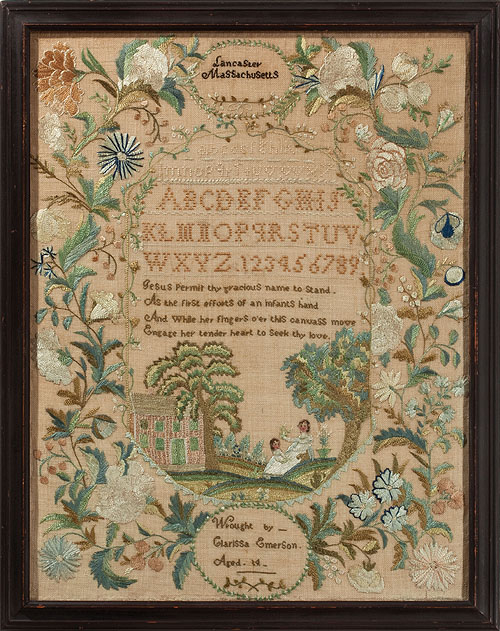 Lancaster
Massachusetts
ABCDEFGHIJ
KLMNOPQRSTUV
WXYZ.123456789
Jesus Permit thy gracious name to Stand.
As the first efforts of an infants hand
And While her fingers o'er this canvass move
Engage her tender heart to Seek thy love.
Wrought by
Clarissa Emerson.
Aged. 14